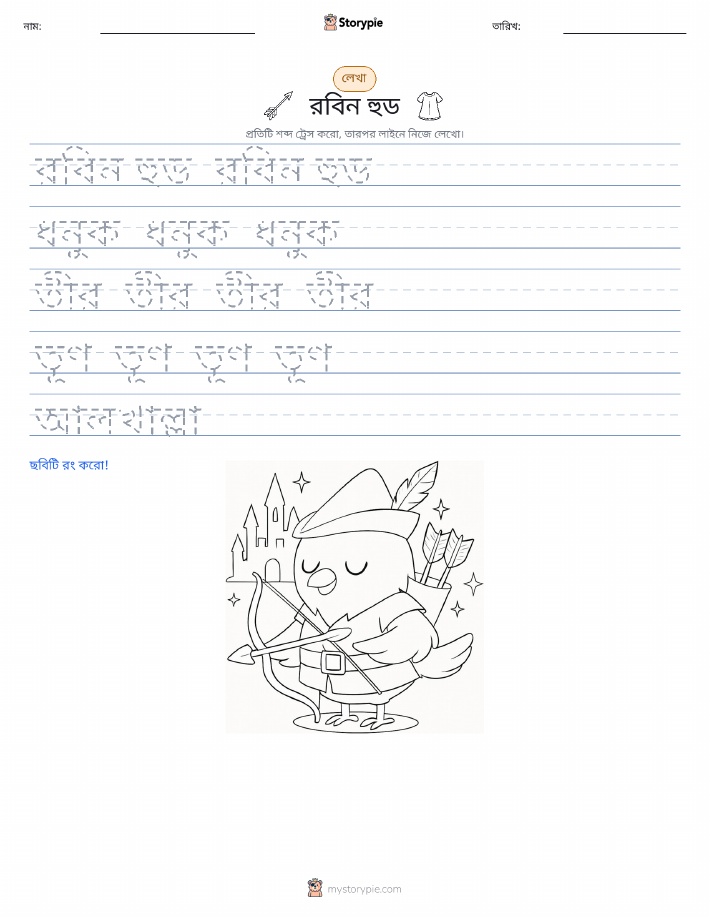 নাম:
Storypie
তারিখ:
লেখা
রবিন হুড
প্রতিটি শব্দ ট্রেস করো, তারপর লাইনে নিজে লেখো।
রবিন হুড রবিন হুড
ধনুক ধনুক ধনুক
তীর তীর তীর তীর
তূণ তূণ তূণ তূণ
আলখাল্লা
ছবিটি রং করো!
mystorypie.com